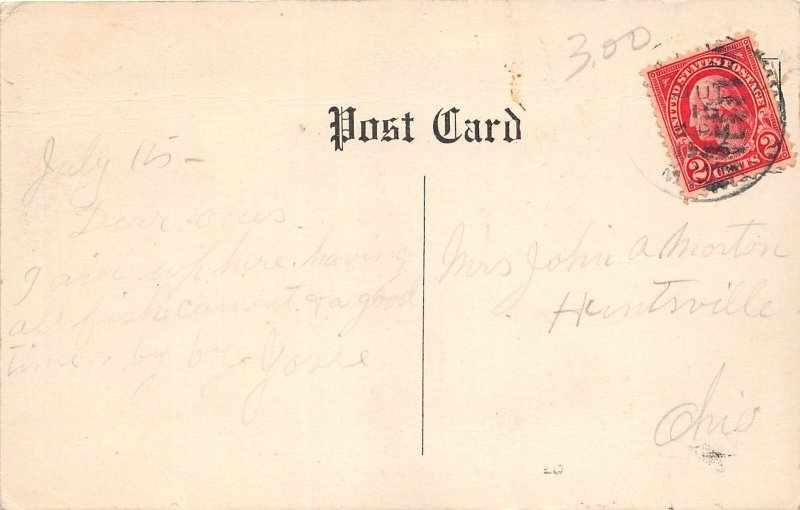 3.00
UNITED STATES POSTAGE
2 CENTS 2
Post Card
July 15 -
Dear ones
I am up here. having
all fish can eat & a good
time. by by - Josie
Mrs John A Morton
Huntsville
Ohio